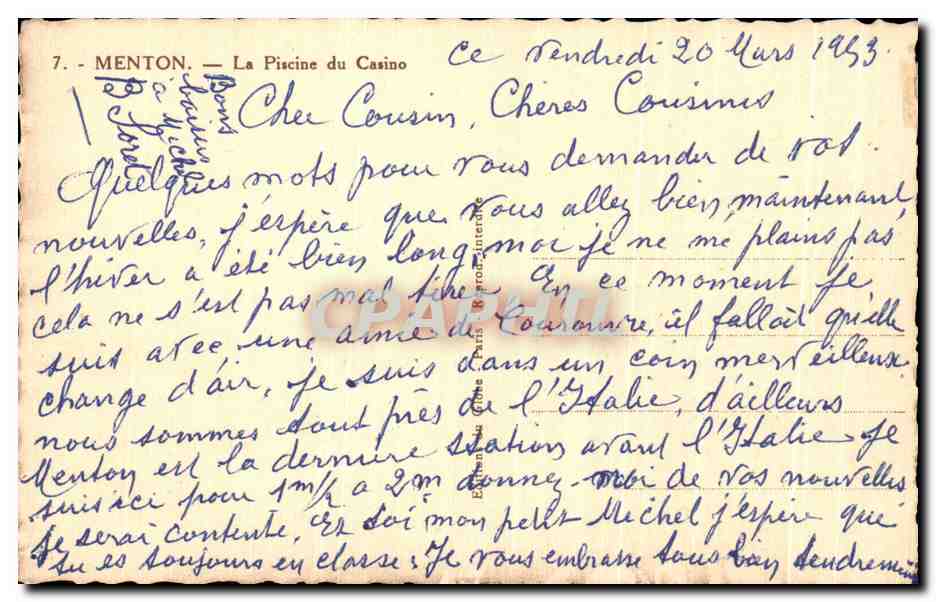 7. - MENTON. — La Piscine du Casino
Ce Vendredi 20 Mars 1953.
Bons
baisers
à Michel
B Soret
Cher Cousin, Chères Cousines
Quelques mots pour vous demander de vos
nouvelles, j'espère que vous allez bien, maintenant,
l'hiver a été bien long, moi je ne me plains pas
cela ne s'est pas mal tiré. En ce moment je
suis avec une amie de, il fallait qu'elle
change d'air, je suis dans un coin merveilleux
nous sommes tout près de l'Italie, d'ailleurs
Menton est la dernière station avant l'Italie. Je
suis ici pour 1m ½ à 2m donnez-moi de vos nouvelles
je serai contente, Et toi mon petit Michel j'espère que
tu es toujours en classe. Je vous embrasse tous bien tendrement
Editions du Globe Paris Reprod. interdite
CPAPHIL